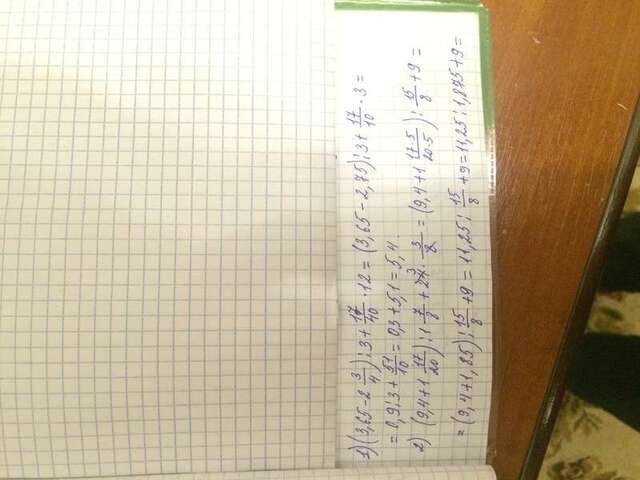 1) (3,65-2 3/4) : 3 + 17/40 · 12 = (3,65-2,75) : 3 + 17/10 · 3 =
= 0,9 : 3 + 51/10 = 0,3 + 5,1 = 5,4.
2) (9,4+1 17/20) : 1 7/8 + 24 3 · 3/8 = (9,4+1 17·5/20·5) : 15/8 + 9 =
= (9,4+1,85) : 15/8 + 9 = 11,25 : 15/8 + 9 = 11,25 : 1,875 + 9 =